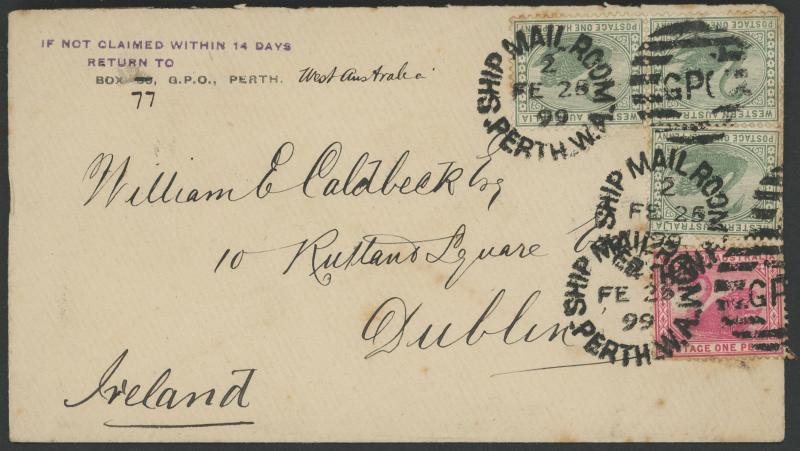 IF NOT CLAIMED WITHIN 14 DAYS
RETURN TO
BOX G.P.O., PERTH. West Australia
77
SHIP MAIL ROOM
2
FE 25
99
PERTH. W.A.
GPO
POSTAGE ONE HALF
WESTERN AUSTRALIA
SHIP MAIL ROOM
2
FE 25
99
SHIP MAIL ROOM
FE 25
99
PERTH. W.A.
GP
POSTAGE ONE PE
William E Caldbeck Esq
10 Rutland Square E
Dublin
Ireland